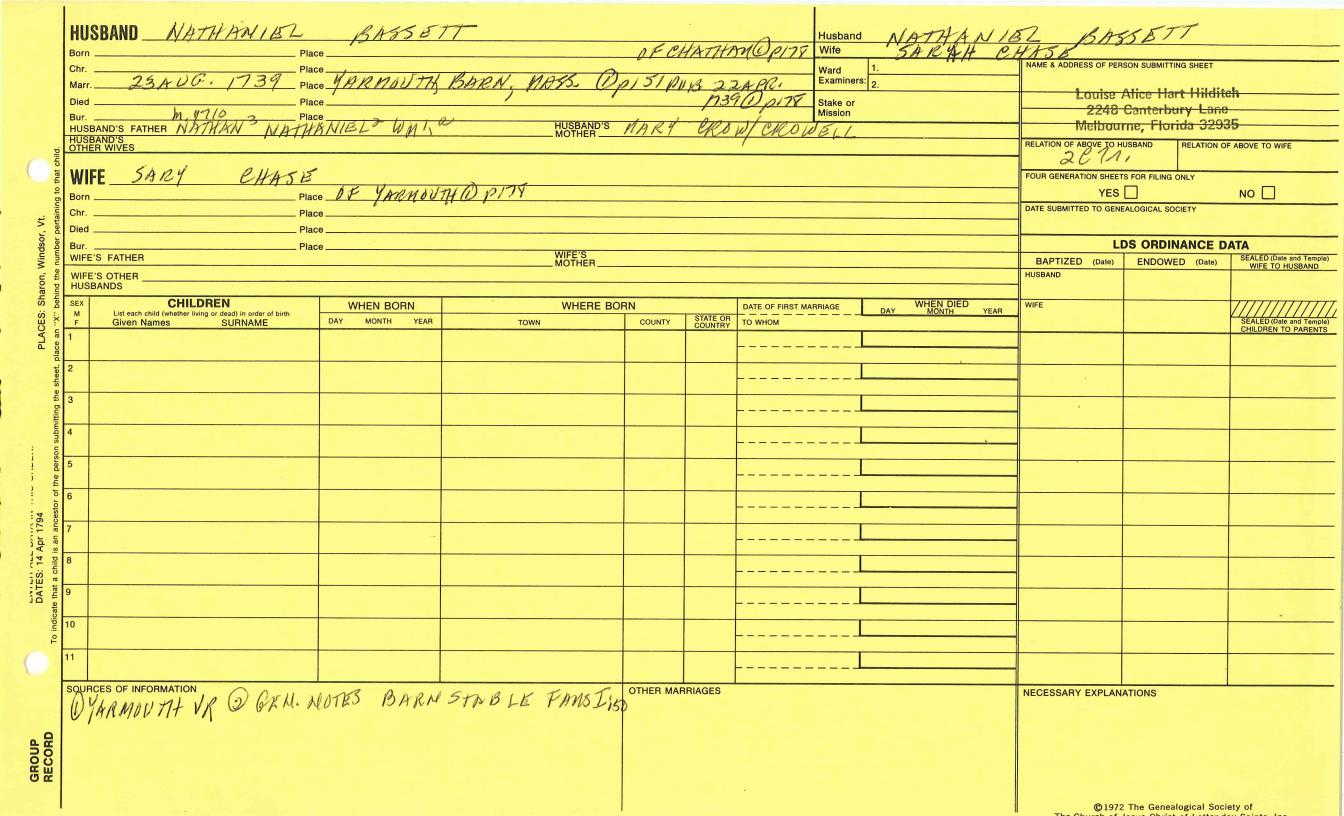 HUSBAND NATHANIEL BASSETT
Born Place OF CHATHAM ① p178
Chr. Place
Marr. 23 AUG. 1739 Place YARMOUTH, BARN, MASS. ① p151 PUB 22 APR.
Died Place 1739 ① p178
Bur. m. 1710 Place
HUSBAND'S FATHER NATHAN³ NATHANIEL² Wm¹, ② HUSBAND'S MOTHER MARY CROW/CROWELL
HUSBAND'S OTHER WIVES
Husband NATHANIEL BASSETT
Wife SARAH CHASE
Ward Examiners: 1.
2.
Stake or Mission
NAME & ADDRESS OF PERSON SUBMITTING SHEET
Louise Alice Hart Hilditch
2248 Canterbury Lane
Melbourne, Florida 32935
RELATION OF ABOVE TO HUSBAND RELATION OF ABOVE TO WIFE
FOUR GENERATION SHEETS FOR FILING ONLY
YES NO
DATE SUBMITTED TO GENEALOGICAL SOCIETY
WIFE SARY CHASE
Born Place OF YARMOUTH ① p178
Chr. Place
Died Place
Bur. Place
WIFE'S FATHER WIFE'S MOTHER
WIFE'S OTHER HUSBANDS
LDS ORDINANCE DATA
BAPTIZED (Date) ENDOWED (Date) SEALED (Date and Temple) WIFE TO HUSBAND
HUSBAND
WIFE
SEALED (Date and Temple) CHILDREN TO PARENTS
SEX M F
CHILDREN
List each child (whether living or dead) in order of birth
Given Names SURNAME
WHEN BORN
DAY MONTH YEAR
WHERE BORN
TOWN COUNTY STATE OR COUNTRY
DATE OF FIRST MARRIAGE
TO WHOM
WHEN DIED
DAY MONTH YEAR
1
2
3
4
5
6
7
8
9
10
11
SOURCES OF INFORMATION
① YARMOUTH VR ② GEN. NOTES BARNSTABLE FAMS I;50
OTHER MARRIAGES
NECESSARY EXPLANATIONS
©1972 The Genealogical Society of
The Church of Jesus Christ of Latter-day Saints, Inc.
PLACES: Sharon, Windsor, Vt.
DATES: 14 Apr 1794
To indicate that a child is an ancestor of the person submitting the sheet, place an "X" behind the number pertaining to that child.
GROUP RECORD